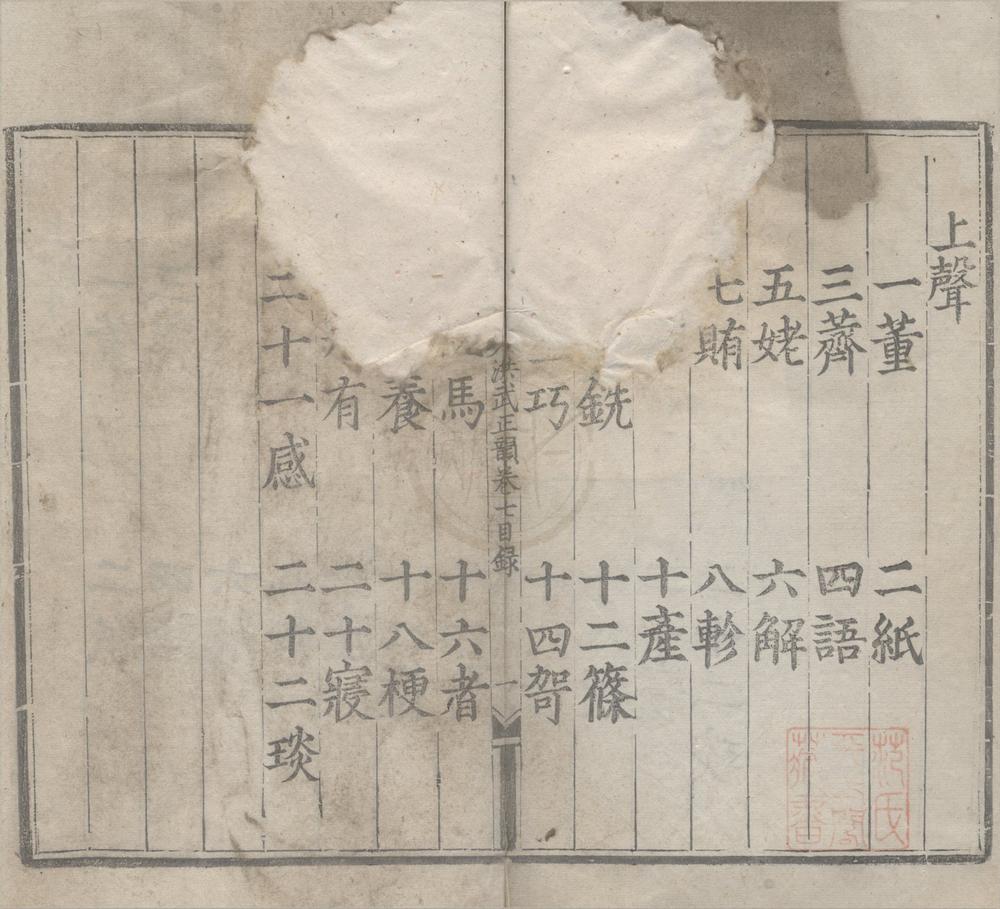 上聲
一董 二紙
三薺 四語
五姥 六解
七賄 八軫
十產
銑 十二篠
巧 十四哿
洪武正韻卷七目錄 一
馬 十六者
養 十八梗
有 二十寢
二十一感 二十二琰
范氏